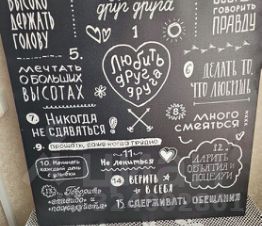 ВЫСОКО
ДЕРЖАТЬ
ГОЛОВУ
друг друга
говорить
ПРАВДУ
1
ЛЮБИТЬ
друг
друга
5.
мечтать
О БОЛЬШИХ
ВЫСОТАХ
6
ДЕЛАТЬ ТО,
ЧТО ЛЮБИМЫЕ
7.
Никогда
НЕ СДАВАТЬСЯ
8
МНОГО
СМЕЯТЬСЯ
9. прощать, даже когда трудно
10. Начинать
каждый день
с улыбки
11
Не лениться
12.
ДАРИТЬ
ОБЪЯТИЯ И
ПОЦЕЛУИ
13. Говорить
"спасибо"
и "пожалуйста"
14 ВЕРИТЬ
В СЕБЯ
15 СДЕРЖИВАТЬ ОБЕЩАНИЯ